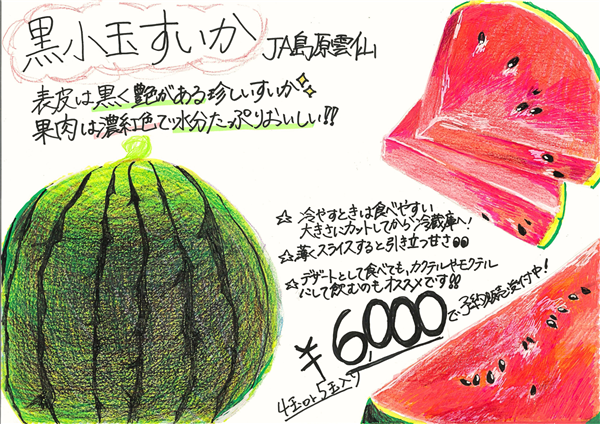 黒小玉すいか JA島原雲仙
表皮は黒く艶がある珍しいすいか
果肉は濃紅色で水分たっぷりおいしい!!
☆ 冷やすときは食べやすい
大きさにカットしてから冷蔵庫へ!
☆ 薄くスライスすると引き立つ甘さ
☆ デザートとして食べても、カクテルやモクテル
にして飲むのもオススメです!!
¥6,000で予約販売受付中!
4玉or5玉入り